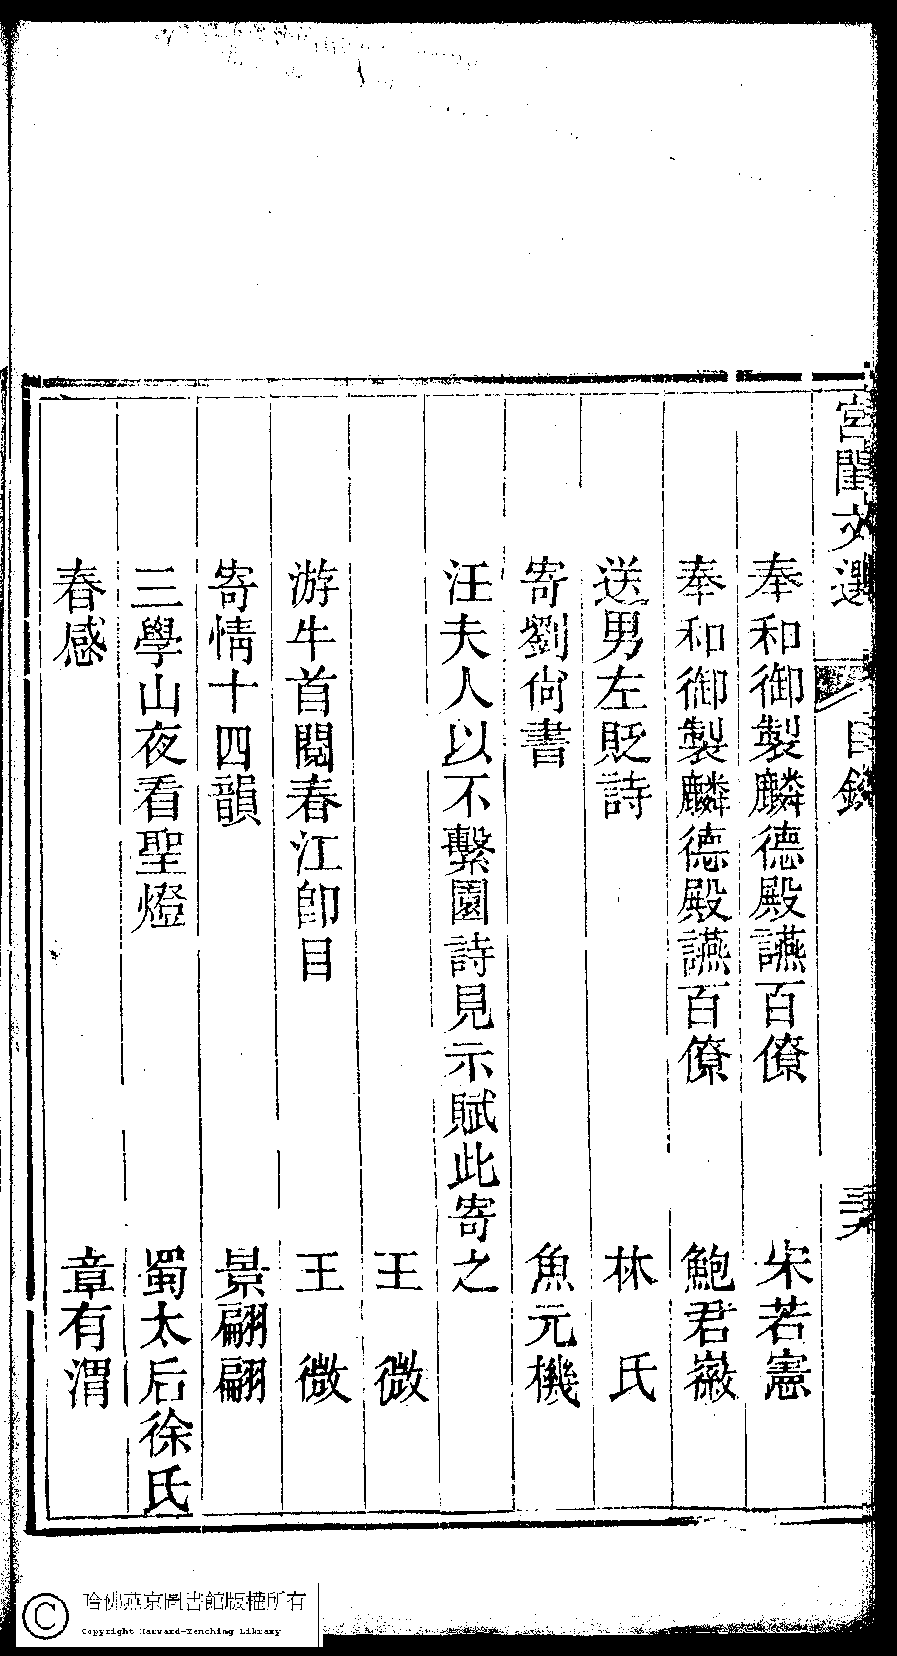 宮閨文選 目錄
奉和御製麟德殿讌百僚 宋若憲
奉和御製麟德殿讌百僚 鮑君徽
送男左貶詩 林氏
寄劉尚書 魚元機
汪夫人以不繫園詩見示賦此寄之
王微
游牛首閱春江即目 王微
寄情十四韻 景翩翩
三學山夜看聖燈 蜀太后徐氏
春感 章有渭
哈佛燕京圖書館版權所有
Copyright Harvard-Yenching Library